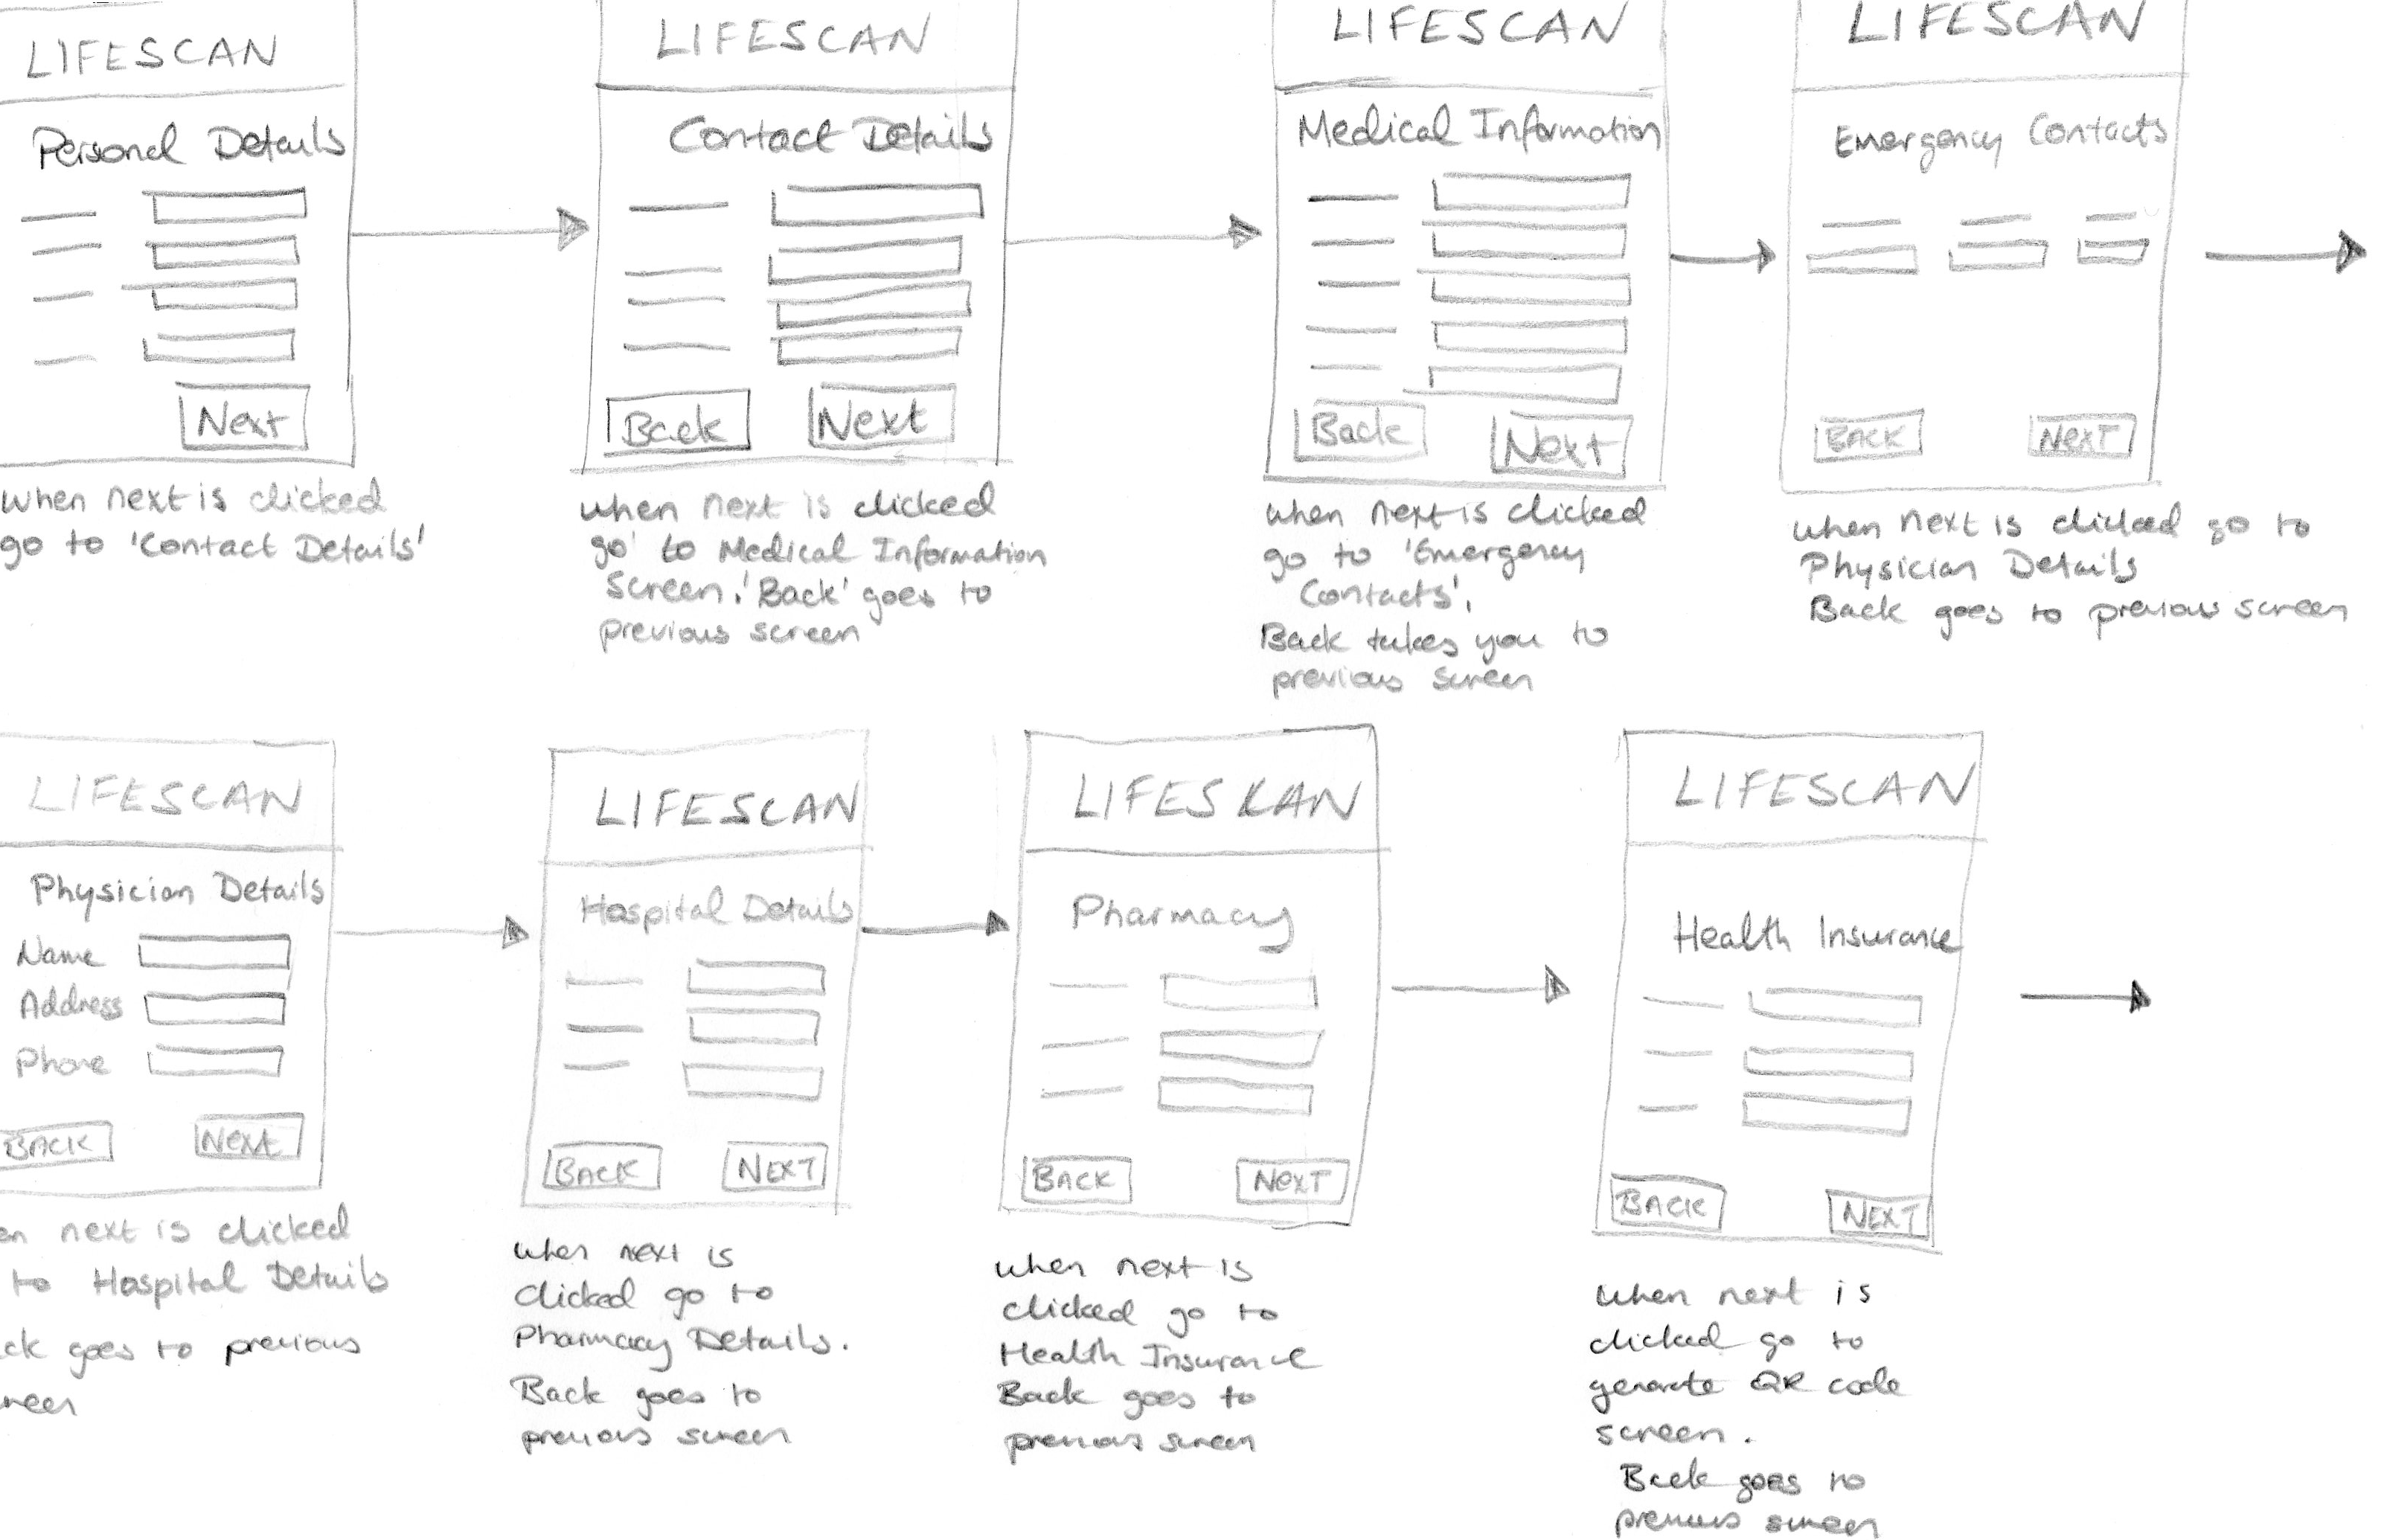 LIFESCAN
Personal Details
Next
when next is clicked
go to 'Contact Details'
LIFESCAN
Contact Details
Back Next
when next is clicked
go to Medical Information
Screen. 'Back' goes to
previous screen
LIFESCAN
Medical Information
Back Next
when next is clicked
go to 'Emergency
Contacts'.
Back takes you to
previous screen
LIFESCAN
Emergency Contacts
BACK NEXT
when next is clicked go to
Physician Details
Back goes to previous screen
LIFESCAN
Physician Details
Name
Address
Phone
BACK NEXT
en next is clicked
to Hospital Details
ck goes to previous
reen
LIFESCAN
Hospital Details
BACK NEXT
when next is
clicked go to
Pharmacy Details.
Back goes to
previous screen
LIFESKAN
Pharmacy
BACK NEXT
when next is
clicked go to
Health Insurance
Back goes to
previous screen
LIFESCAN
Health Insurance
BACK NEXT
when next is
clicked go to
generate QR code
screen.
Back goes to
previous screen